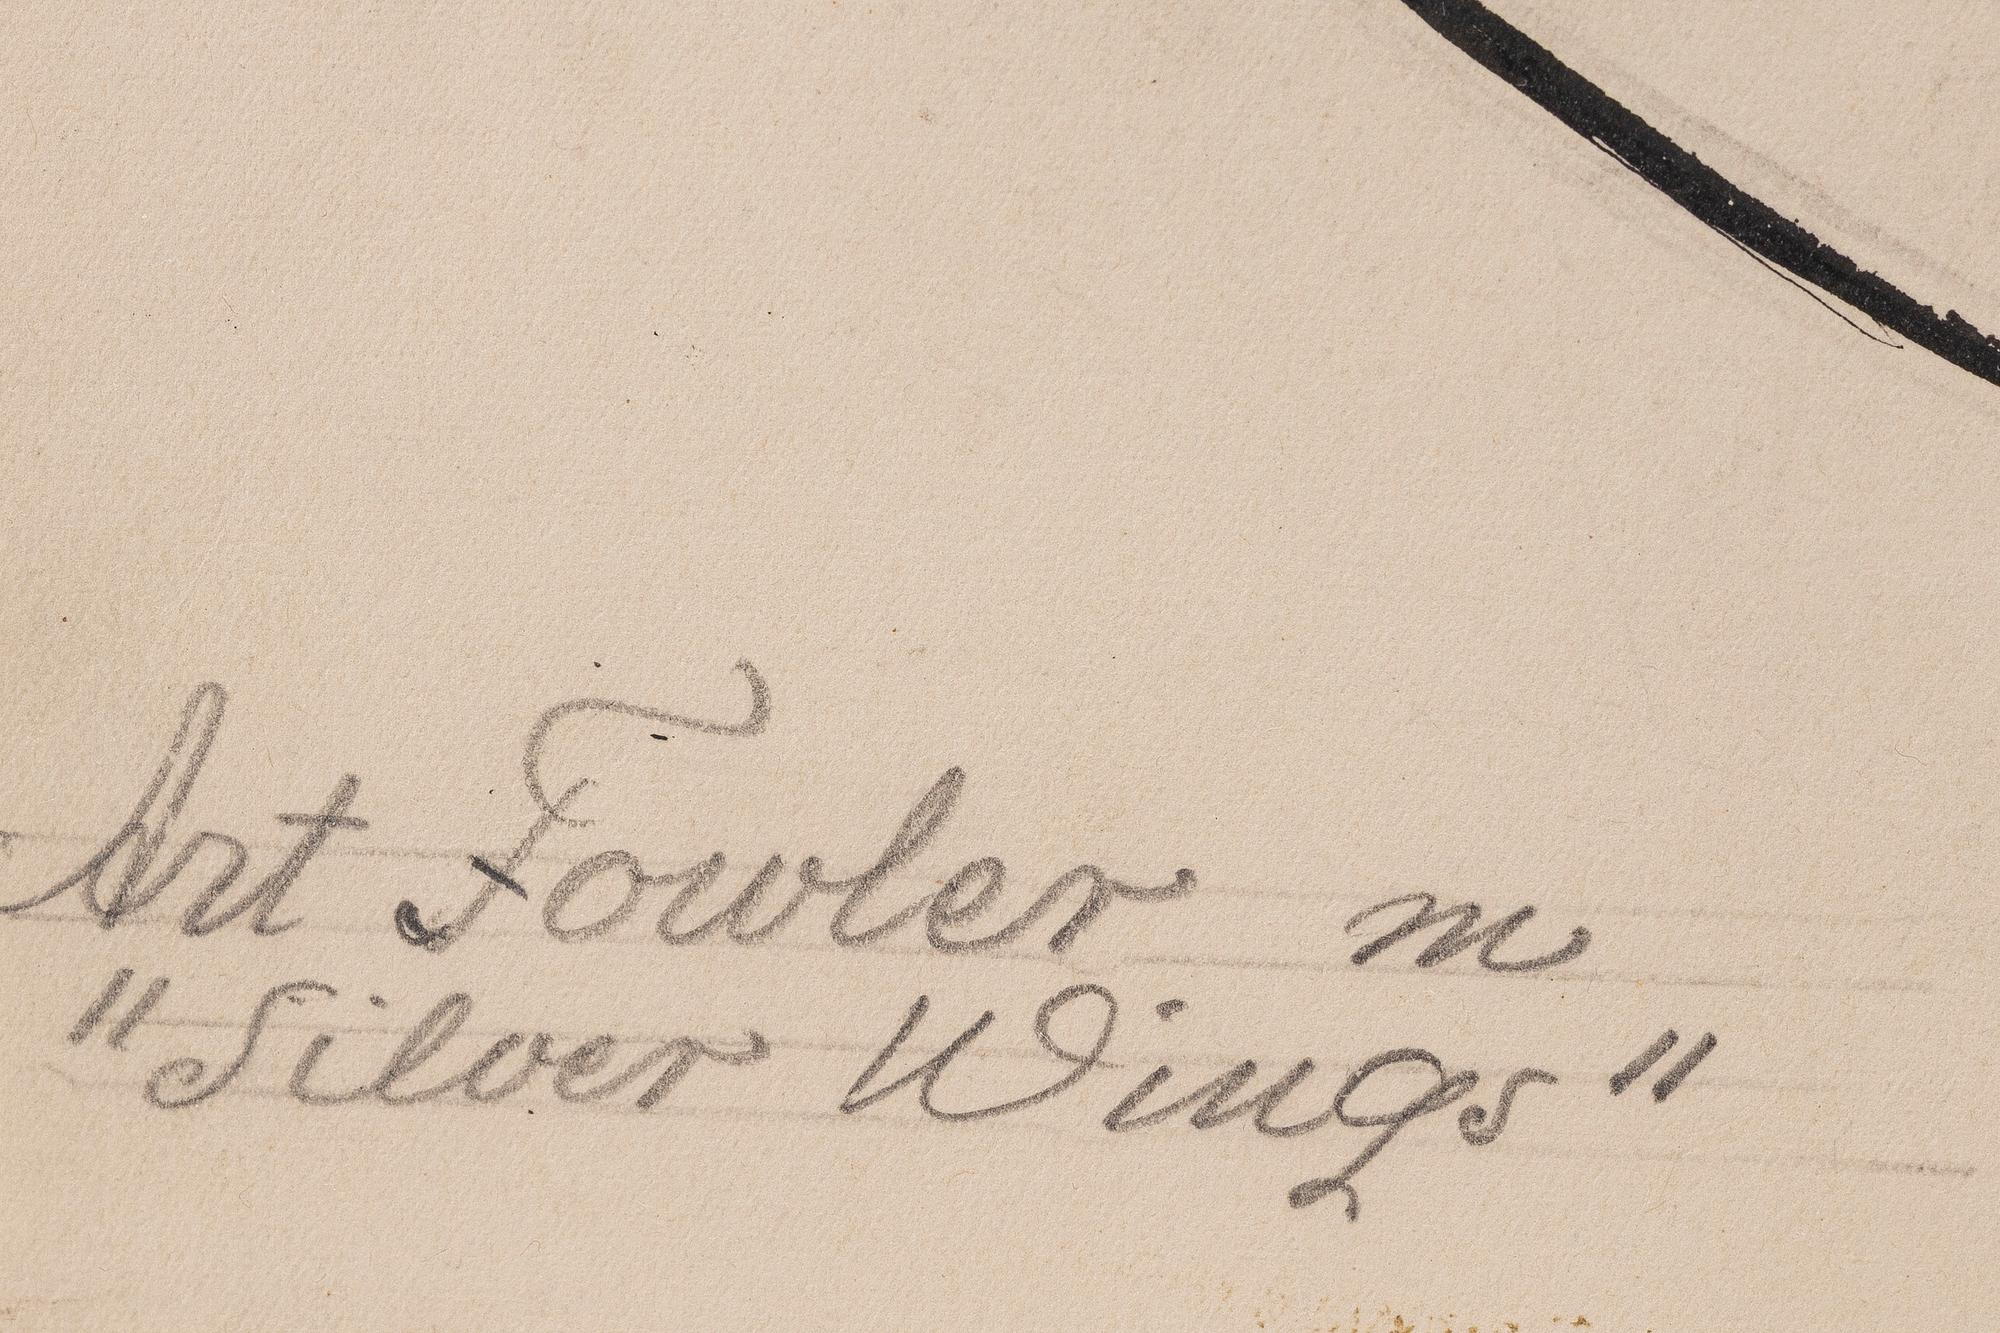 Art Fowler in
"Silver Wings"